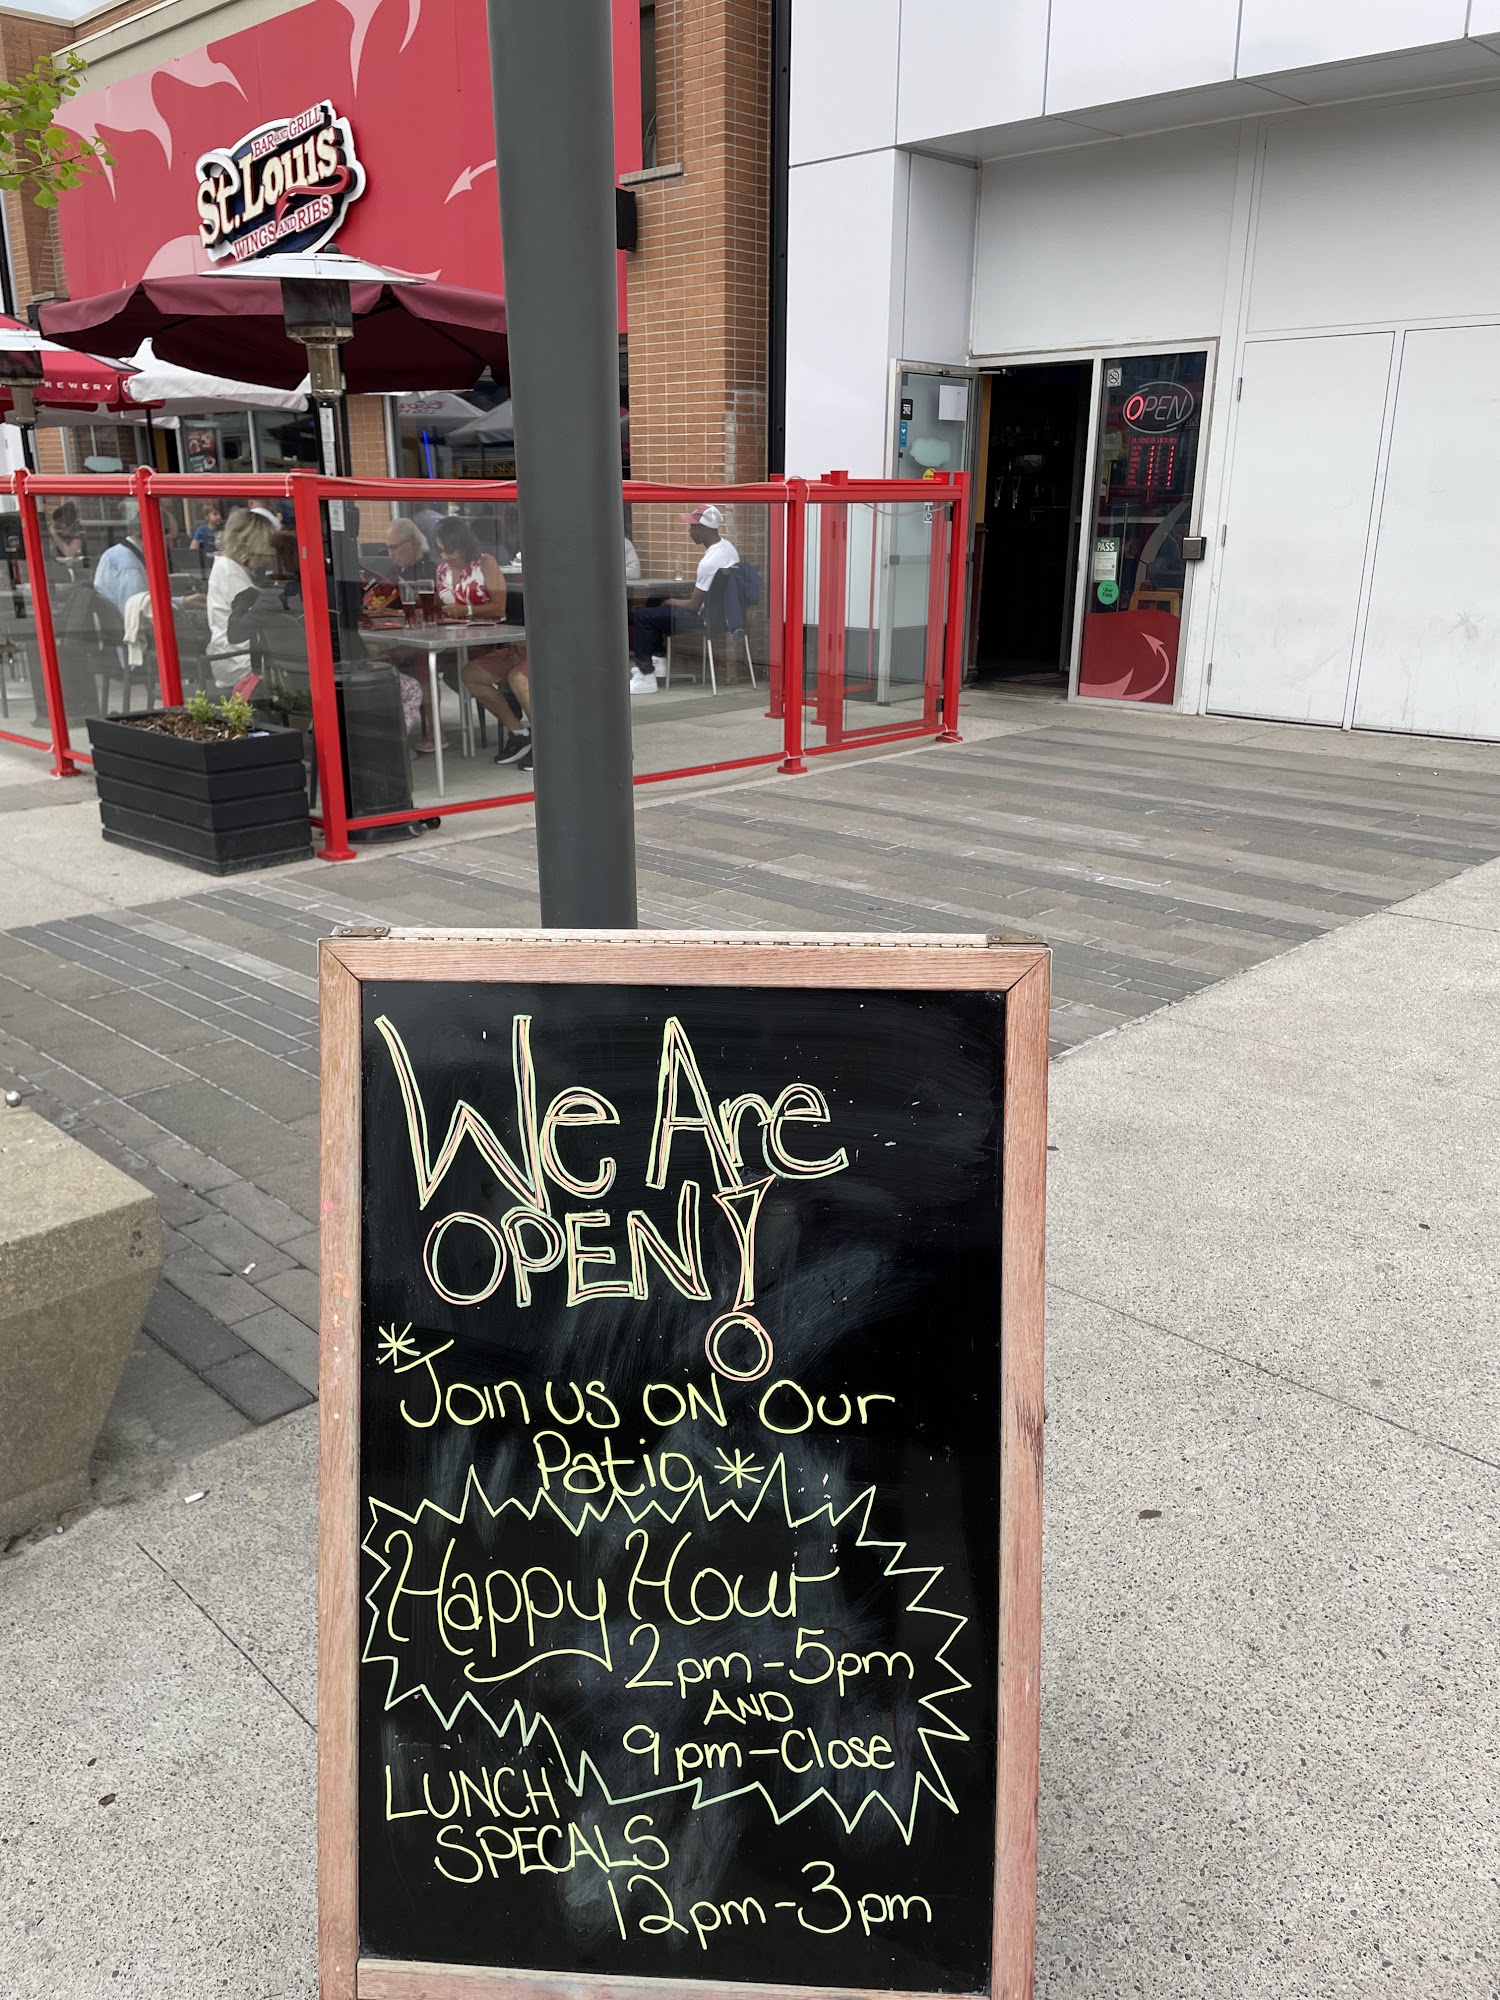 BAR AND GRILL
St. Louis
WINGS AND RIBS
REWERY
OPEN
BUSINESS HOURS
PASS
We Are
OPEN!
*Join us ON Our
Patio*
Happy Hour
2pm-5pm
AND
9pm-Close
LUNCH
SPECALS
12pm-3pm